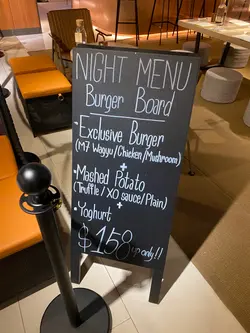 NIGHT MENU
Burger Board
• Exclusive Burger
(M7 Wagyu/Chicken/Mushroom)
+
• Mashed Potato
(Truffle/XO sauce/Plain)
+
• Yoghurt
$158 only!!